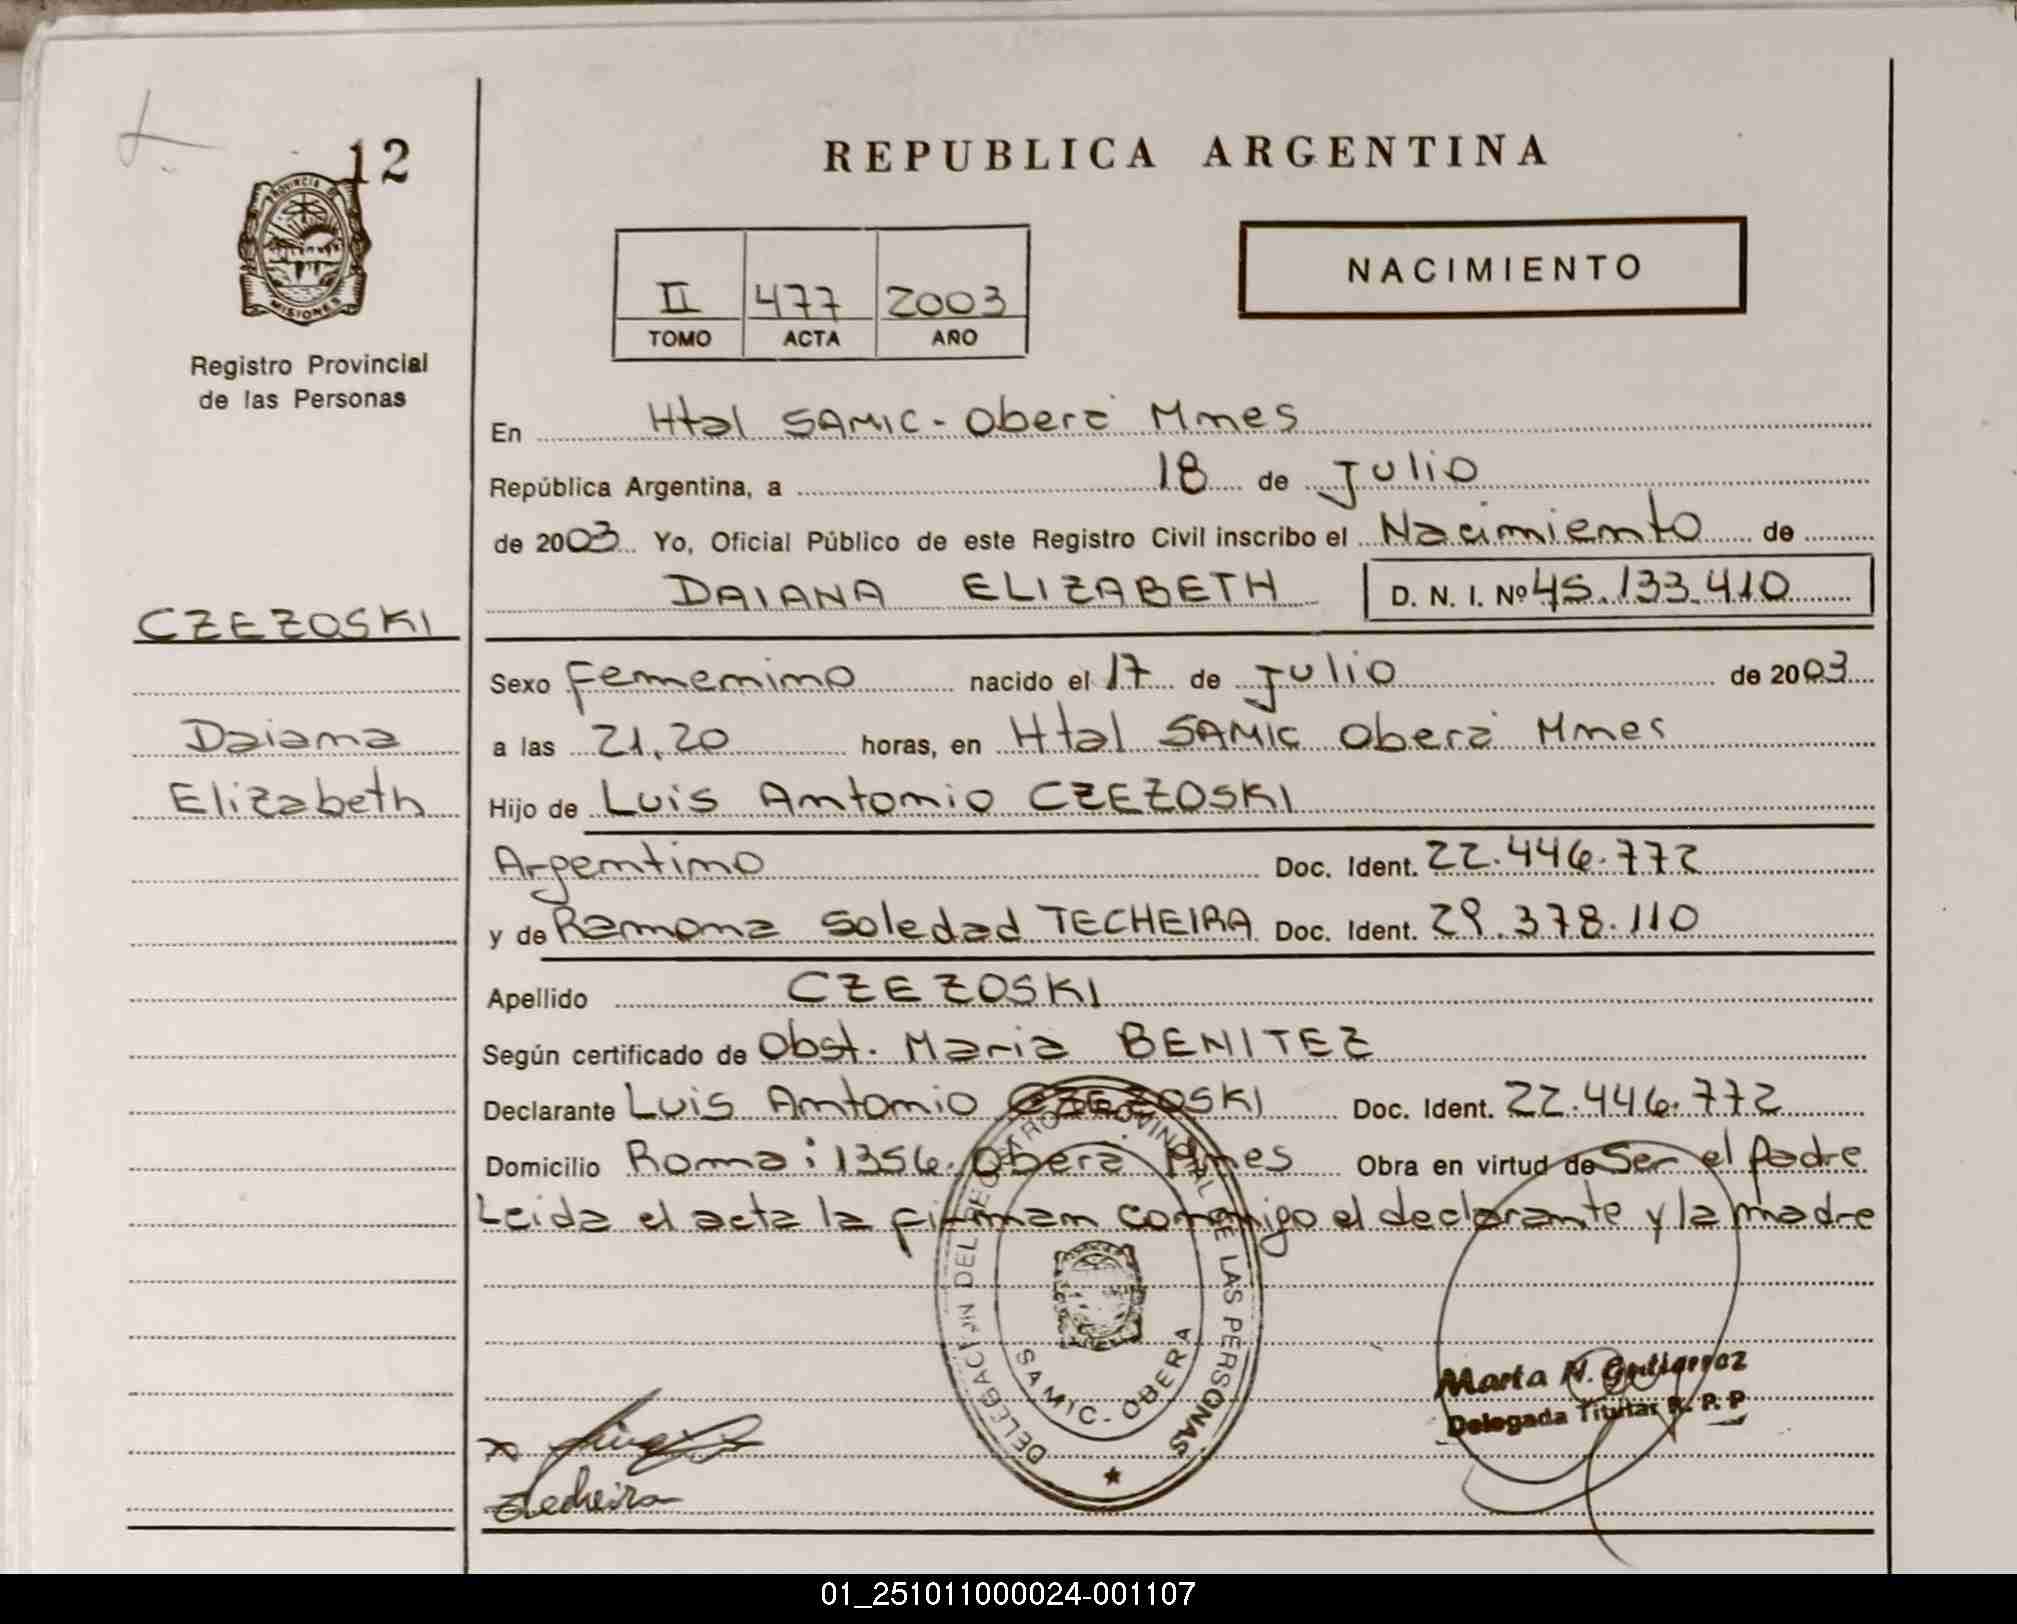 12
PROVINCIA DE
MISIONES
Registro Provincial
de las Personas
CZEZOSKI
Daiana
Elizabeth
REPUBLICA ARGENTINA
II 477 2003
TOMO ACTA AÑO
NACIMIENTO
En Htal SAMIC - Oberá Mnes
República Argentina, a 18 de Julio
de 2003 Yo, Oficial Público de este Registro Civil inscribo el Nacimiento de
DAIANA ELIZABETH D. N. I. Nº 45.133.410
Sexo Femenino nacido el 17 de Julio de 2003
a las 21,20 horas, en Htal SAMIC Oberá Mnes
Hijo de Luis Antonio CZEZOSKI
Argentino Doc. Ident. 22.446.772
y de Ramona Soledad TECHEIRA Doc. Ident. 29.378.110
Apellido CZEZOSKI
Según certificado de Obst. Maria BENITEZ
Declarante Luis Antonio CZEZOSKI Doc. Ident. 22.446.772
Domicilio Roma: 1356. Oberá Mnes Obra en virtud de Ser el padre
Leida el acta la firman conmigo el declarante y la madre
DELEGACION DEL REGISTRO PROVINCIAL DE LAS PERSONAS
SAMIC - OBERA
Marta N. Gutierrez
Delegada Titular R. P. P
Techeira
01_251011000024-001107